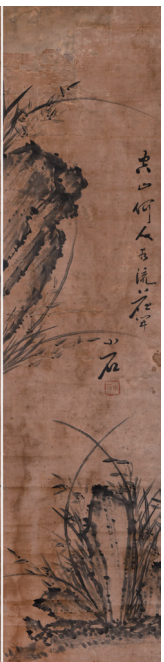 空山何人水流花開
小石